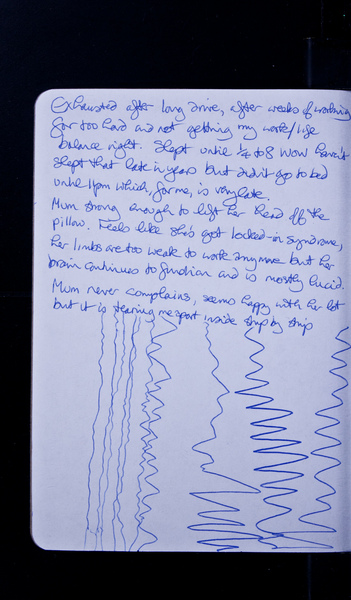 Exhausted after long drive, after weeks of working
far too hard and not getting my work/life
balance right. Slept until 1/4 to 8 wow haven't
slept that late in years but didn't go to bed
until 11pm which, for me, is very late.
Mum strong enough to lift her head off the
pillow. Feels like she's got locked-in syndrome,
her limbs are too weak to work anymore but her
brain continues to function and is mostly lucid.
Mum never complains, seems happy with her lot
but it is tearing me apart inside strip by strip